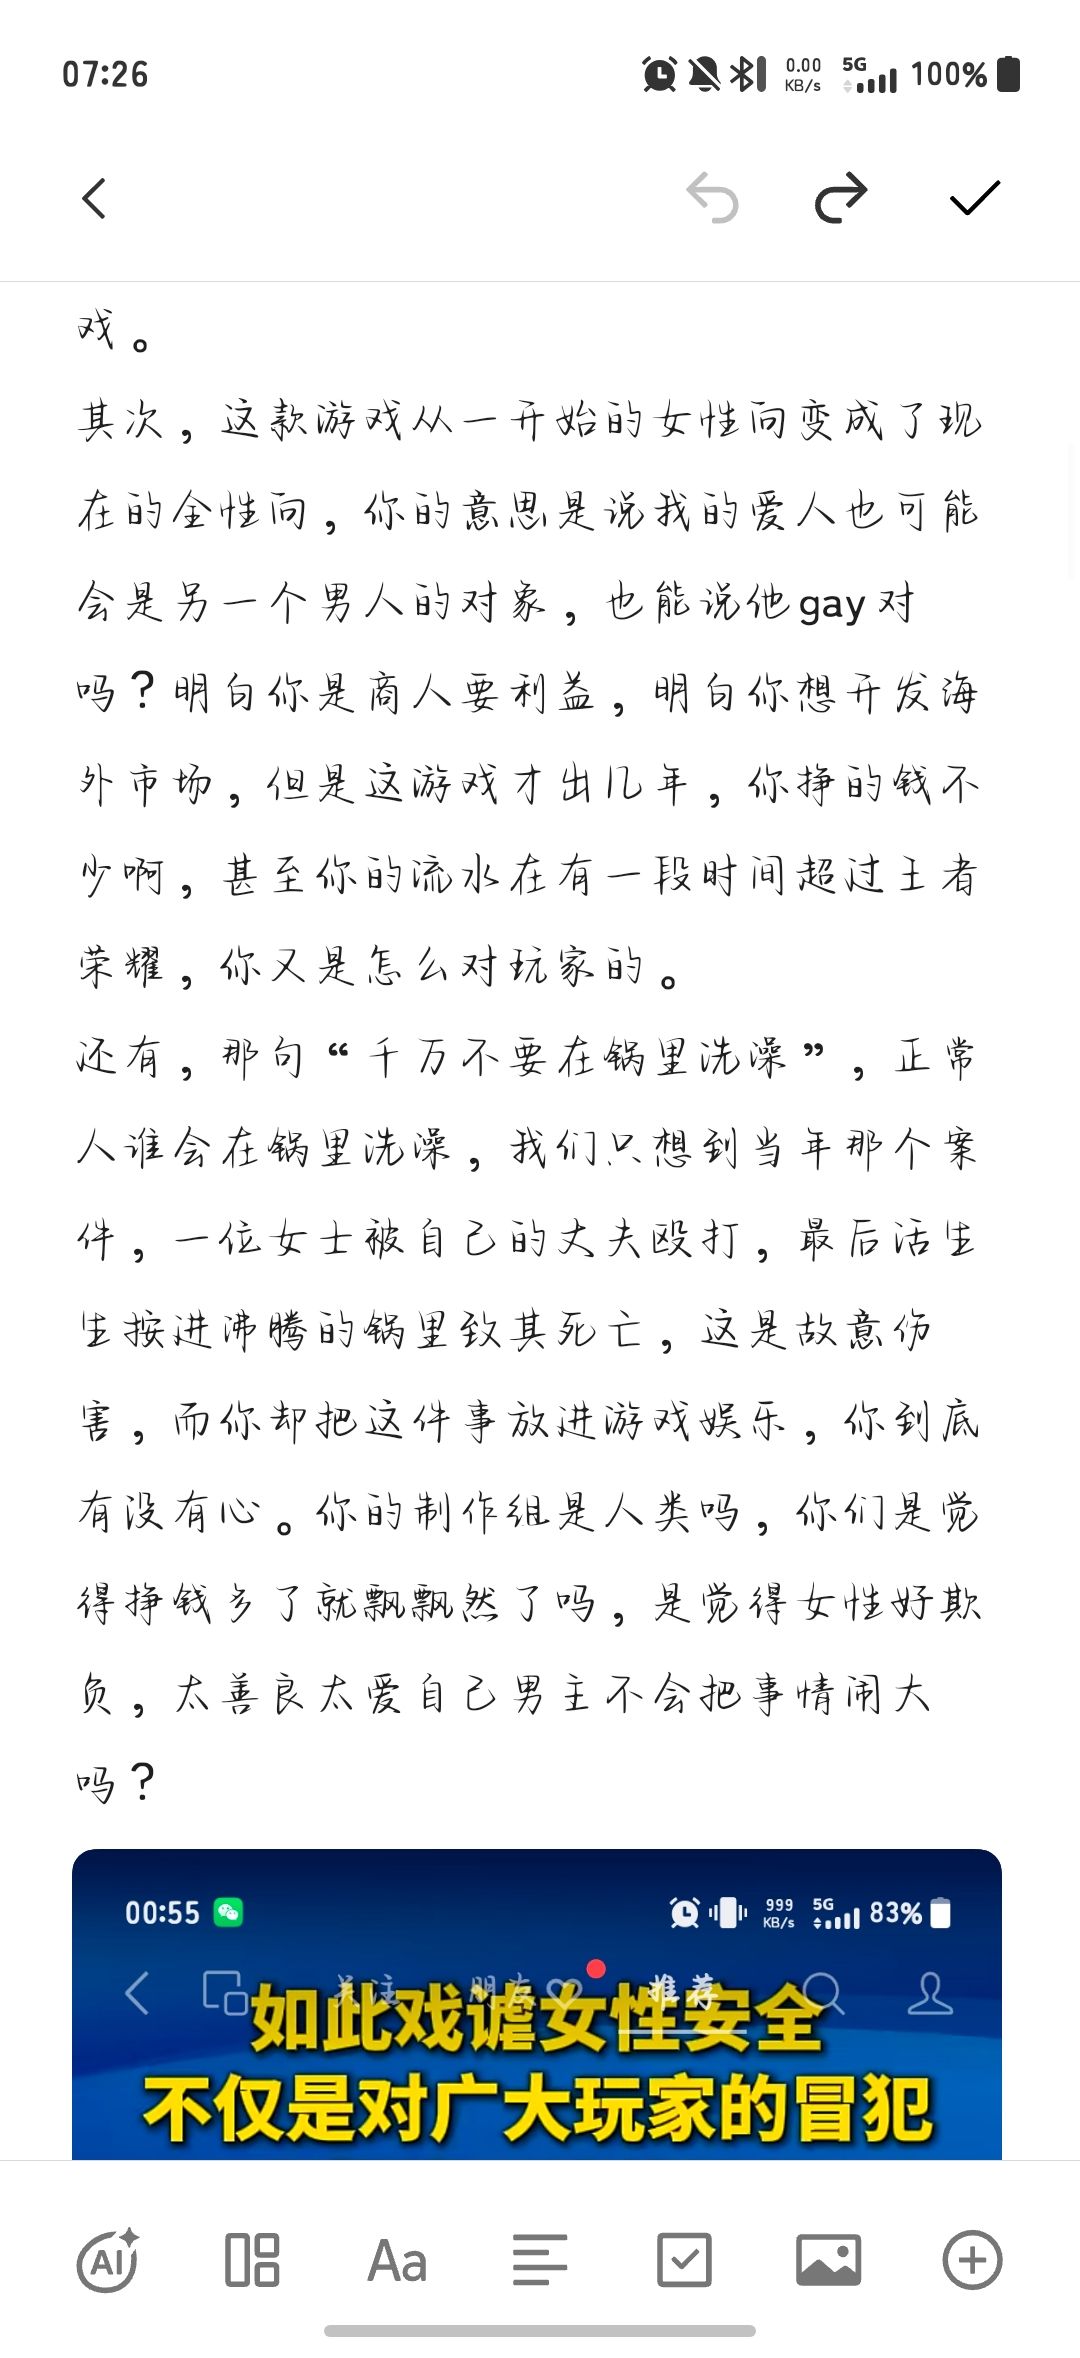 07:26
0.00 KB/s 5G 100%
戏。
其次，这款游戏从一开始的女性向变成了现
在的全性向，你的意思是说我的爱人也可能
会是另一个男人的对象，也能说他gay对
吗？明白你是商人要利益，明白你想开发海
外市场，但是这游戏才出几年，你挣的钱不
少啊，甚至你的流水在有一段时间超过王者
荣耀，你又是怎么对玩家的。
还有，那句“千万不要在锅里洗澡”，正常
人谁会在锅里洗澡，我们只想到当年那个案
件，一位女士被自己的丈夫殴打，最后活生
生按进沸腾的锅里致其死亡，这是故意伤
害，而你却把这件事放进游戏娱乐，你到底
有没有心。你的制作组是人类吗，你们是觉
得挣钱多了就飘飘然了吗，是觉得女性好欺
负，太善良太爱自己男主不会把事情闹大
吗？
00:55 999 KB/s 5G 83%
关注 朋友 推荐
如此戏谑女性安全
不仅是对广大玩家的冒犯
AI Aa